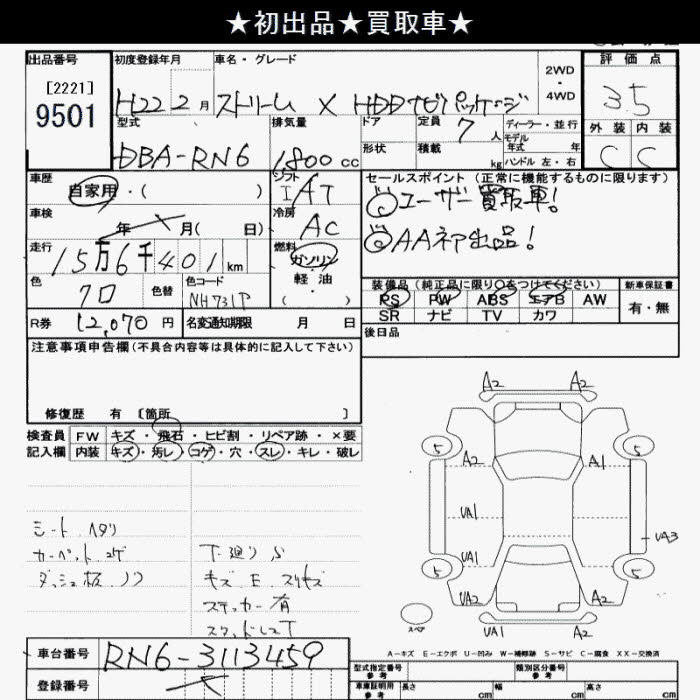 ★初出品★買取車★
出品番号
[2221]
9501
初度登録年月
H22 2月
車名・グレード
ストリーム X HDDナビパッケージ
2WD
・
4WD
評価点
3.5
外装 内装
C C
型式
DBA-RN6
排気量
1800cc
ドア
形状
定員 7人
積載 kg
ディーラー・並行
モデル
年式 年
ハンドル 左・右
車歴
自家用・( )
シフト
IAT
セールスポイント (正常に機能するものに限ります)
◎ユーザー買取車!
◎AA初出品!
車検
年 月( 日)
冷房
AC
走行
15万6千401km
燃料
ガソリン
軽油
・
( )
色
クロ
色替
色コード
NH731P
装備品(純正品に限り○をつけてください)
PS PW ABS エアB AW
SR ナビ TV カワ
新車保証書
有・無
R券 12,070円
名変通知期限 月 日
後日品
注意事項申告欄(不具合内容等は具体的に記入して下さい)
修復歴 有 〔箇所 〕
検査員
記入欄
FW キズ・飛石・ヒビ割・リペア跡・×要
内装 キズ・汚レ・コゲ・穴・スレ・キレ・破レ
シート ヘタリ
カーペット コゲ
ダッシュ板 ノリ
下廻り S
キズ E スリキズ
ステッカー有
A2 A2
5 5
A2 A1
UA1
UA3
UA1
5 5
UA2 A2
スペア
UA1 A2
A-キズ E-エクボ U-凹み W-補修跡 S-サビ C-腐食 XX-交換済
車台番号 RN6-3113459
登録番号
型式指定番号
参考
類別区分番号
参考
車庫証明用
参考
長さ cm
幅 cm
高さ cm